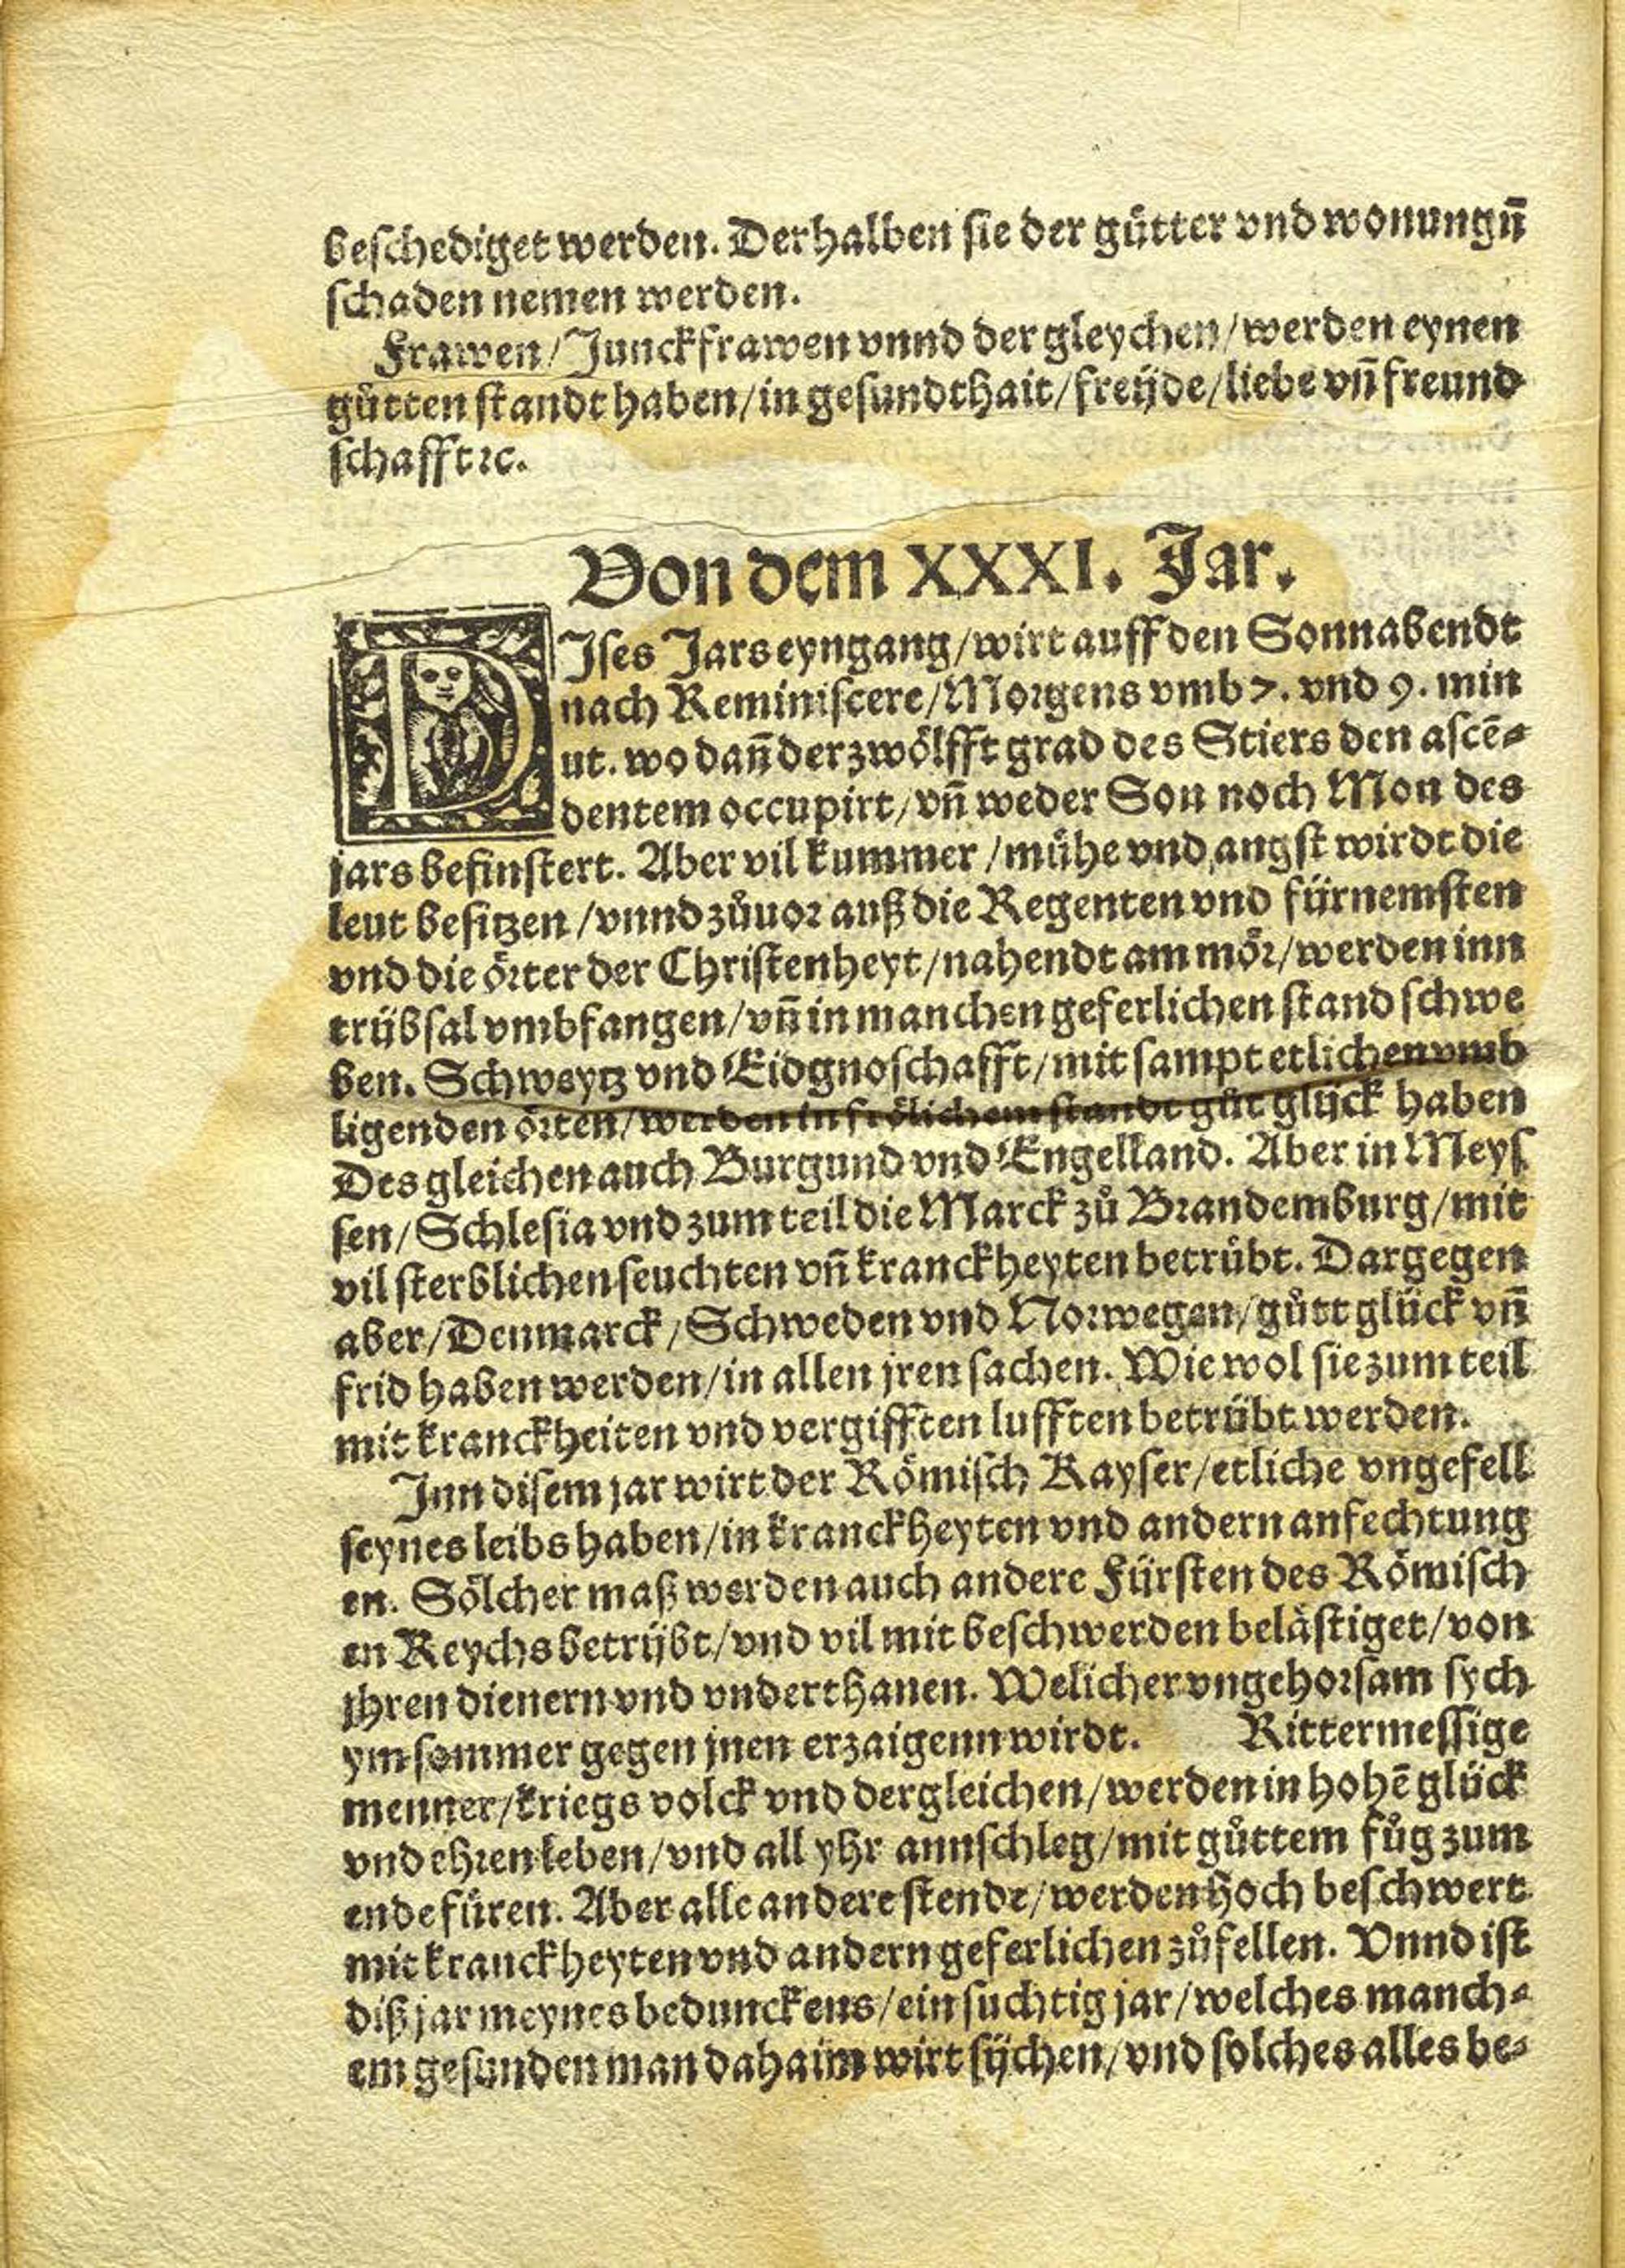 beschediget werden. Derhalben sie der gůtter vnd wonungñ
schaden nemen werden.
Frawen/Junckfrawen vnnd der gleychen/werden eynen
gůtten standt haben/in gesundthait/freÿde/liebe vñ freund
schafft ꝛc.
Von dem XXXI. Jar.
DIses Jars eyngang/wirt auff den Sonnabendt
nach Reminiscere/Morgens vmb 7. vnd 9. min
ut. wo dañ der zwölfft grad des Stiers den ascē-
dentem occupirt/vñ weder Son noch Mon des
jars befinstert. Aber vil kummer/mühe vnd angst wirdt die
leut besitzen/vnnd zůuor auß die Regenten vnd fürnemsten
vnd die örter der Christenheyt/nahendt am mör/werden inn
trübsal vmbfangen/vñ in manchen geferlichen stand schwe
ben. Schweytz vnd Eidgnoschafft/mit sampt etlichen vmb
ligenden örten/werden in frölichem standt gůt glück haben
Des gleichen auch Burgund vnd Engelland. Aber in Meys
sen/Schlesia vnd zum teil die Marck zů Brandemburg/mit
vil sterblichen seuchten vñ kranckheyten betrübt. Dargegen
aber/Denmarck/Schweden vnd Norwegen/gůtt glück vñ
frid haben werden/in allen jren sachen. Wie wol sie zum teil
mit kranckheiten vnd vergifften lufften betrübt werden.
Inn disem jar wirt der Römisch Kayser/etliche vngefell
seynes leibs haben/in kranckheyten vnd andern anfechtung
en. Sölcher maß werden auch andere Fürsten des Römisch
en Reychs betrübt/vnd vil mit beschwerden belästiget/von
jhren dienern vnd vnderthanen. Welicher vngehorsam sych
ym sommer gegen jnen erzaigenn wirdt. Rittermessige
menner/kriegs volck vnd dergleichen/werden in hohē glück
vnd ehren leben/vnd all yhr annschleg/mit gůttem fůg zum
ende füren. Aber alle andere stende/werden hoch beschwert
mit kranckheyten vnd andern geferlichen zůfellen. Vnnd ist
diß jar meynes bedunckens/ein suchtig jar/welches manch-
em gesunden man dahaim wirt sÿchen/vnd solches alles be-